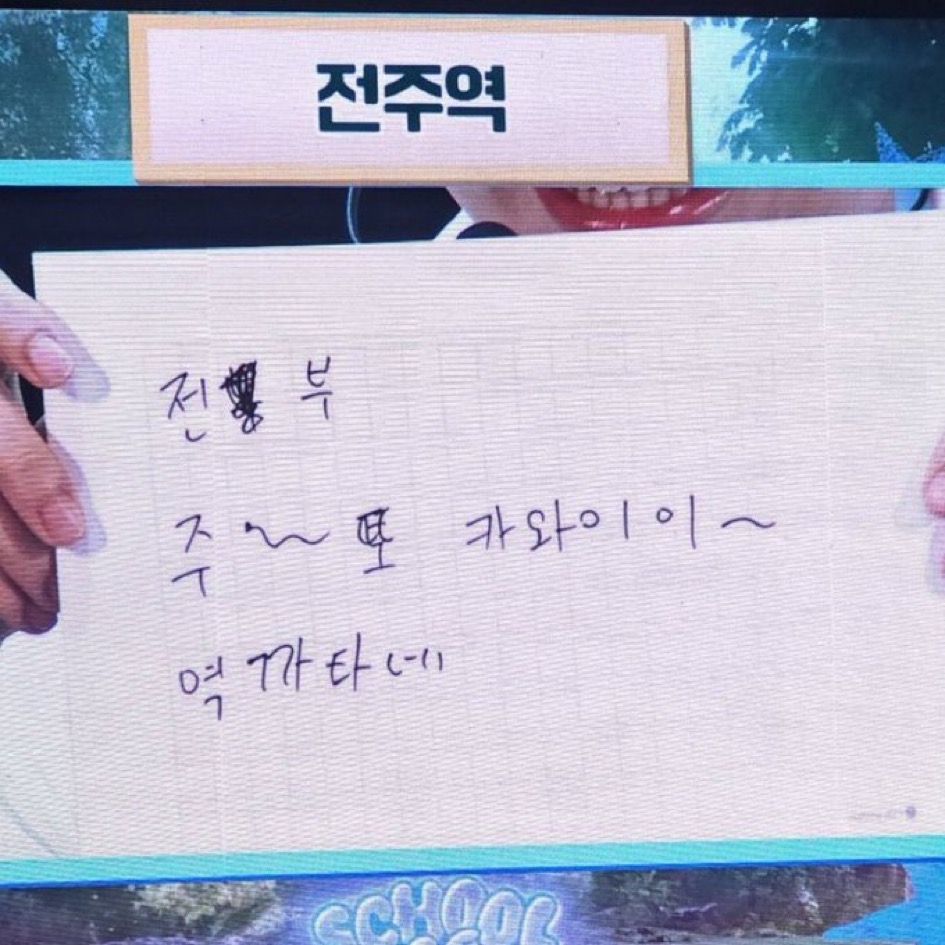 전주역
전 부
주~ 또 카와이이~
역까타네
SCHOOL